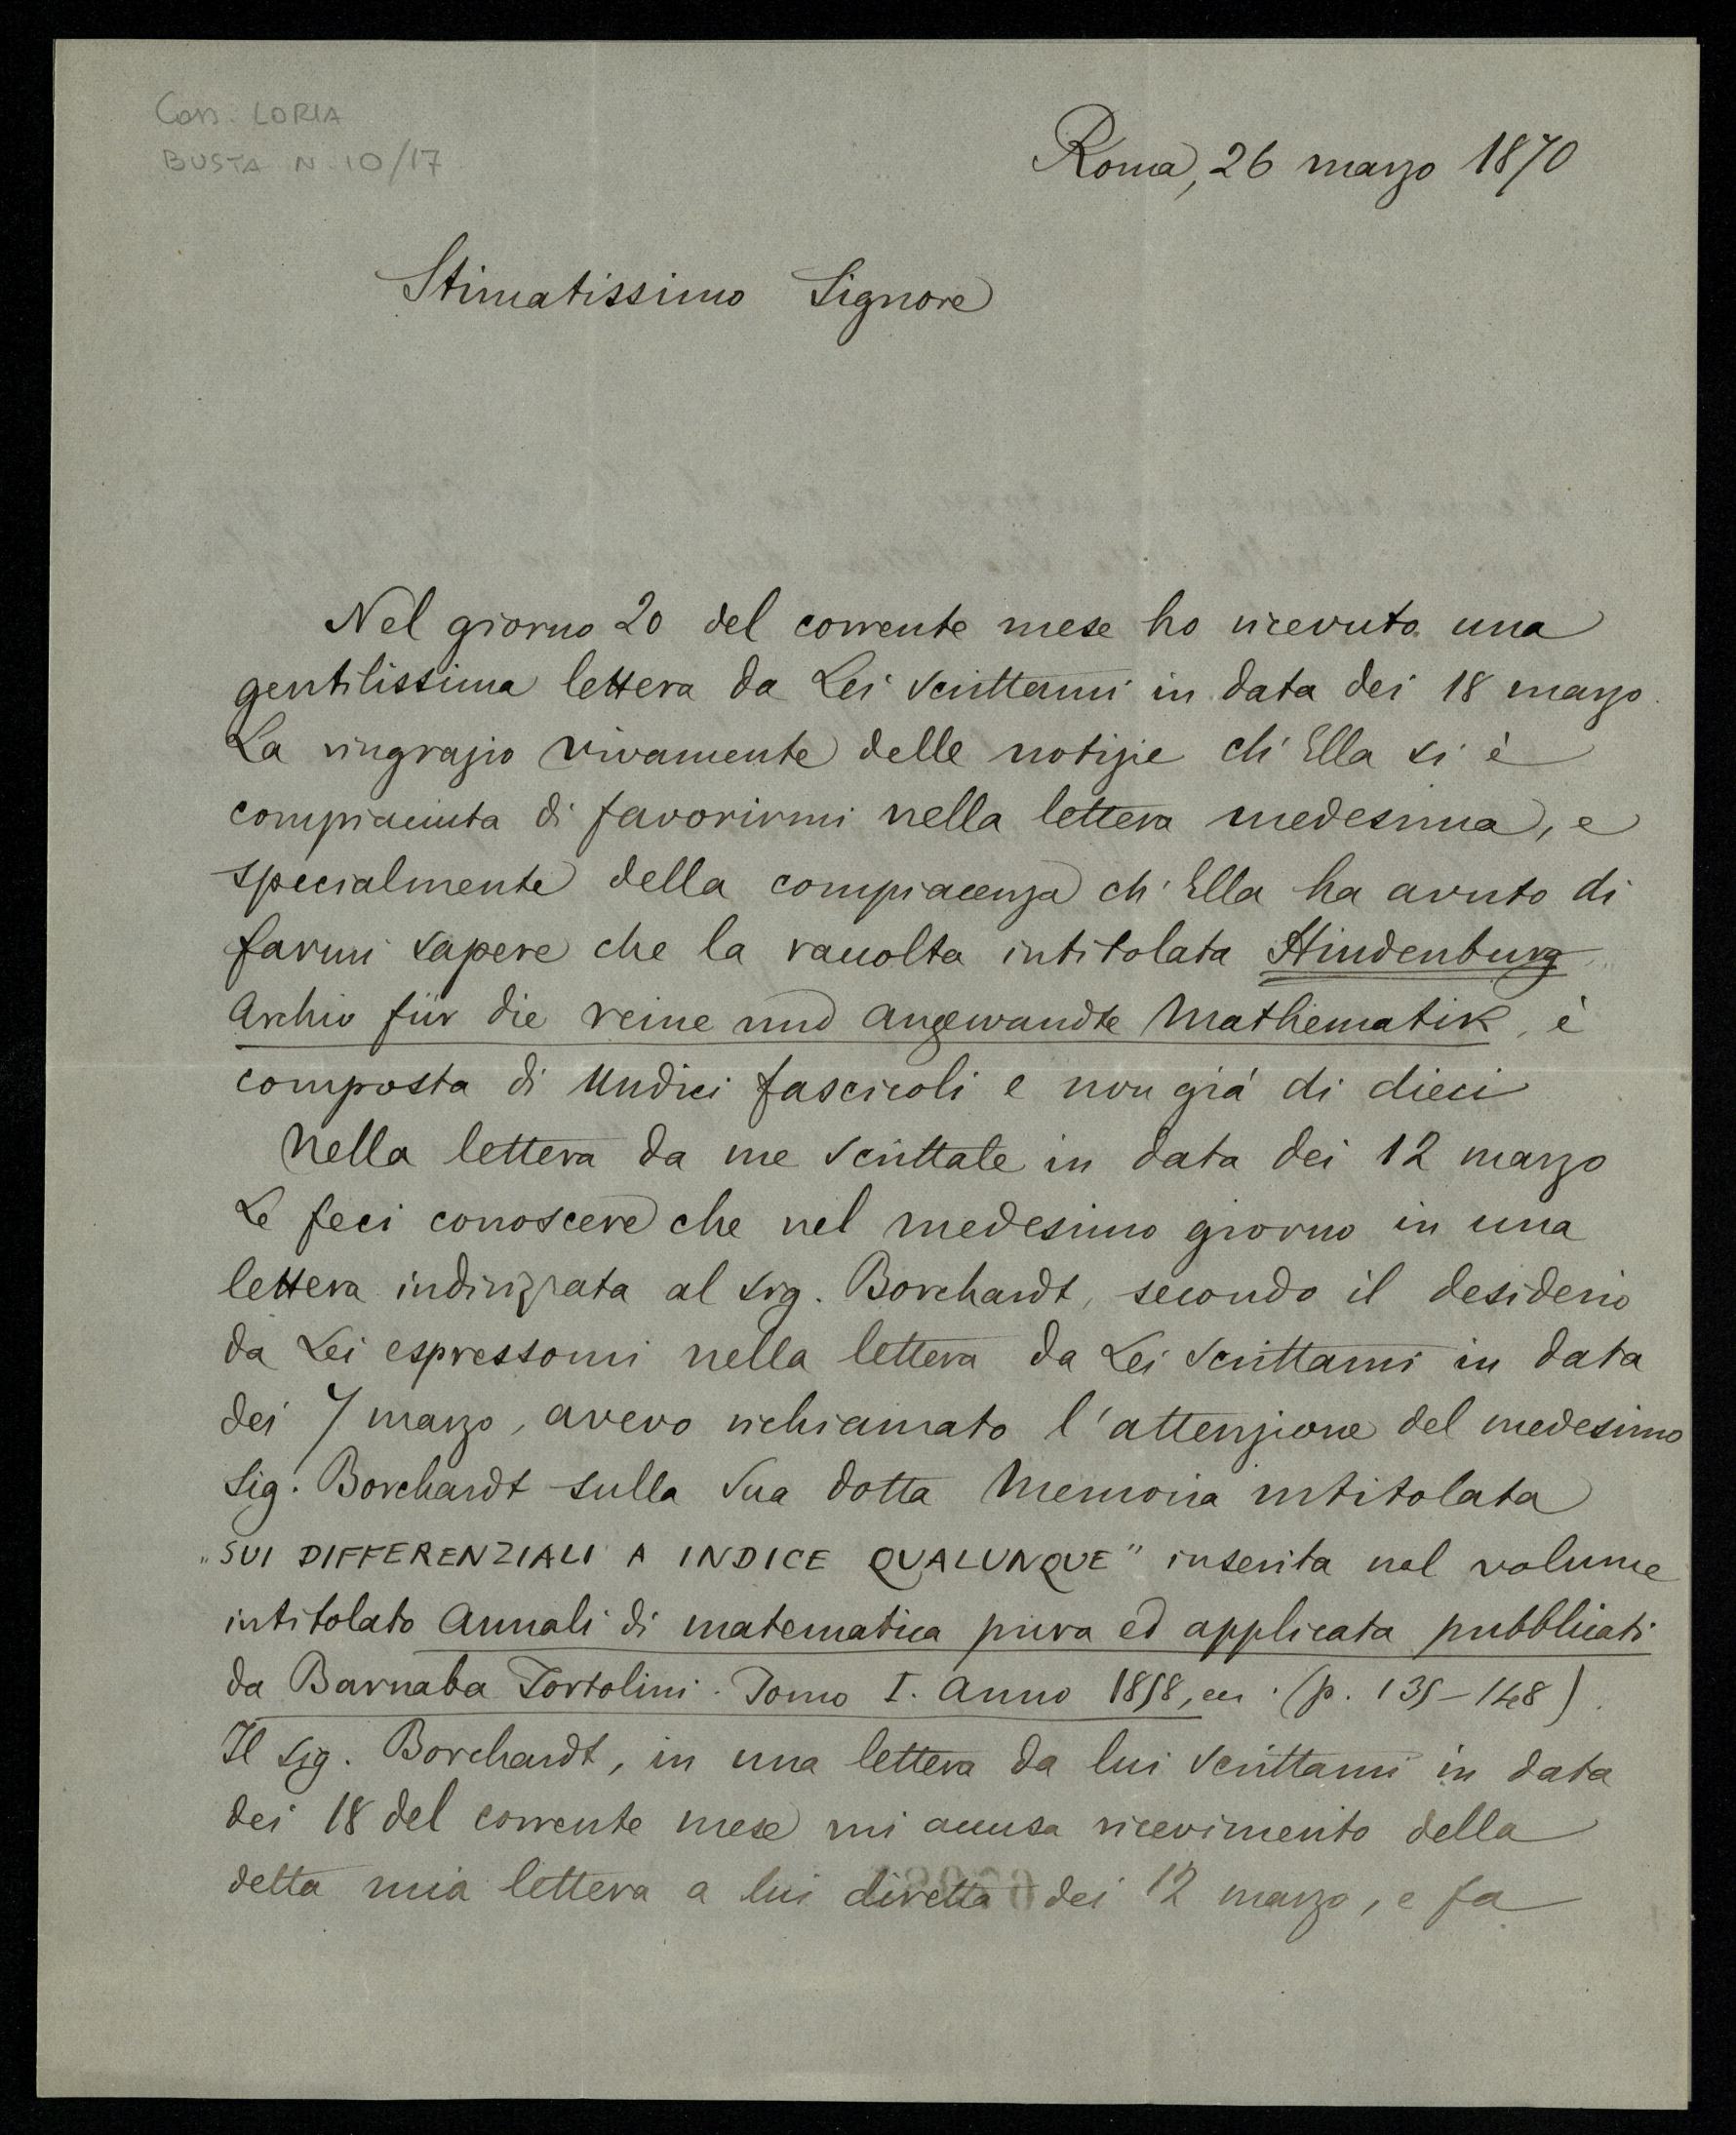 Corr. LORIA
BUSTA N. 10/17
Roma, 26 marzo 1870
Stimatissimo Signore
Nel giorno 20 del corrente mese ho ricevuto una
gentilissima lettera da Lei scrittami in data dei 18 marzo.
La ringrazio vivamente delle notizie ch'Ella si è
compiaciuta di favorirmi nella lettera medesima, e
specialmente della compiacenza ch'Ella ha avuto di
farmi sapere che la raccolta intitolata Hindenburg
Archiv für die reine und angewandte Mathematik, è
composta di undici fascicoli e non già di dieci
Nella lettera da me scrittale in data dei 12 marzo
Le feci conoscere che nel medesimo giorno in una
lettera indirizzata al sig. Borchardt, secondo il desiderio
da Lei espressomi nella lettera da Lei scrittami in data
dei 7 marzo, avevo richiamato l'attenzione del medesimo
Sig. Borchardt sulla Sua dotta Memoria intitolata
„SUI DIFFERENZIALI A INDICE QUALUNQUE" inserita nel volume
intitolato Annali di matematica pura ed applicata pubblicati
da Barnaba Tortolini. Tomo I. Anno 1858, ecc. (p. 135-148).
Il sig. Borchardt, in una lettera da lui scrittami in data
dei 18 del corrente mese mi accusa ricevimento della
detta mia lettera a lui diretta dei 12 marzo, e fa